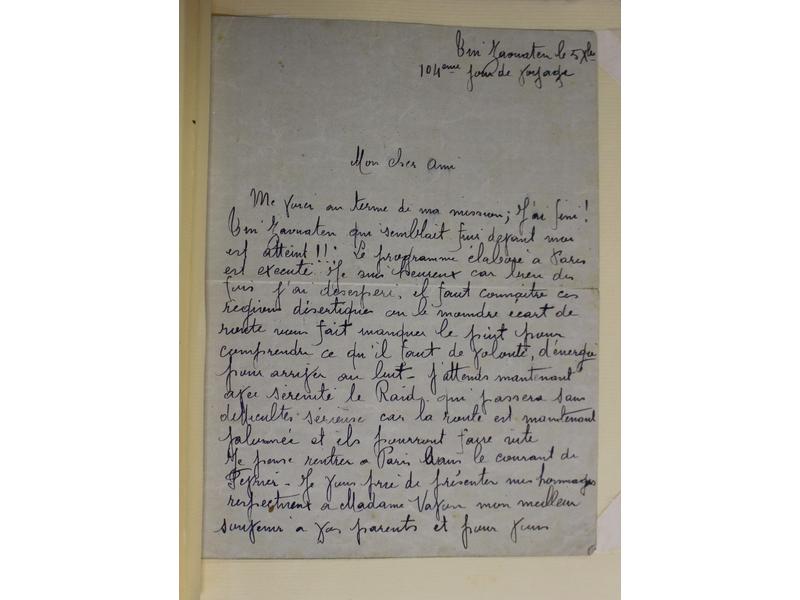 Tin Zaouaten le 5 Xbre
104eme jour de voyage
Mon cher ami
Me voici au terme de ma mission; J'ai fini!
Tin Zaouaten qui semblait fuir devant moi
est atteint!!! Le programme élaboré a Paris
est executé. Je suis heureux car bien des
fois j'ai desesperé, il faut connaitre ces
regions désertiques ou le moindre ecart de
route vous fait manquer le point pour
comprendre ce qu'il faut de volonté, d'énergie
pour arriver au but - J'attends maintenant
avec sérénité le Raid qui passera sans
difficultés sérieuse car la route est maintenant
jalonnée et ils pourront faire vite
Je pense rentrer a Paris dans le courant de
Fevrier - Je vous prie de présenter mes hommages
respectueux a Madame mon meilleur
souvenir a vos parents et pour vous